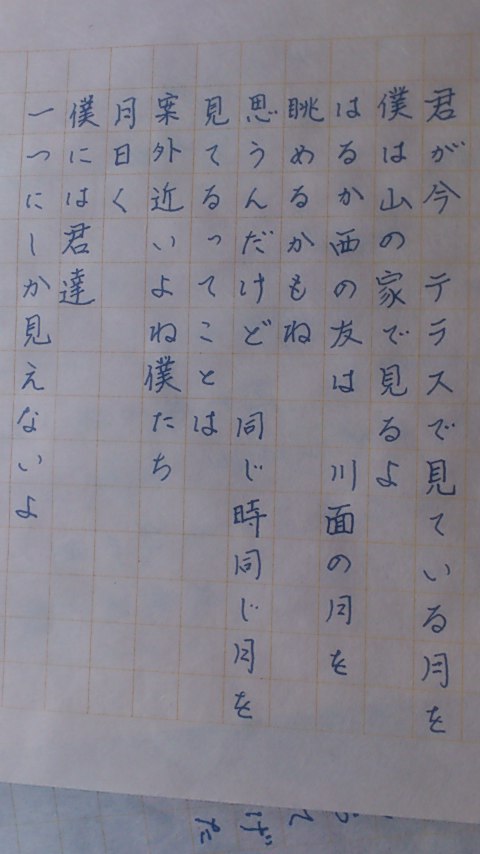 君が今　テラスで見ている月を
僕は山の家で見るよ
はるか西の友は　川面の月を
眺めるかもね
思うんだけど　同じ時同じ月を
見てるってことは
案外近いよね僕たち
月日く
僕には君達
一つにしか見えないよ